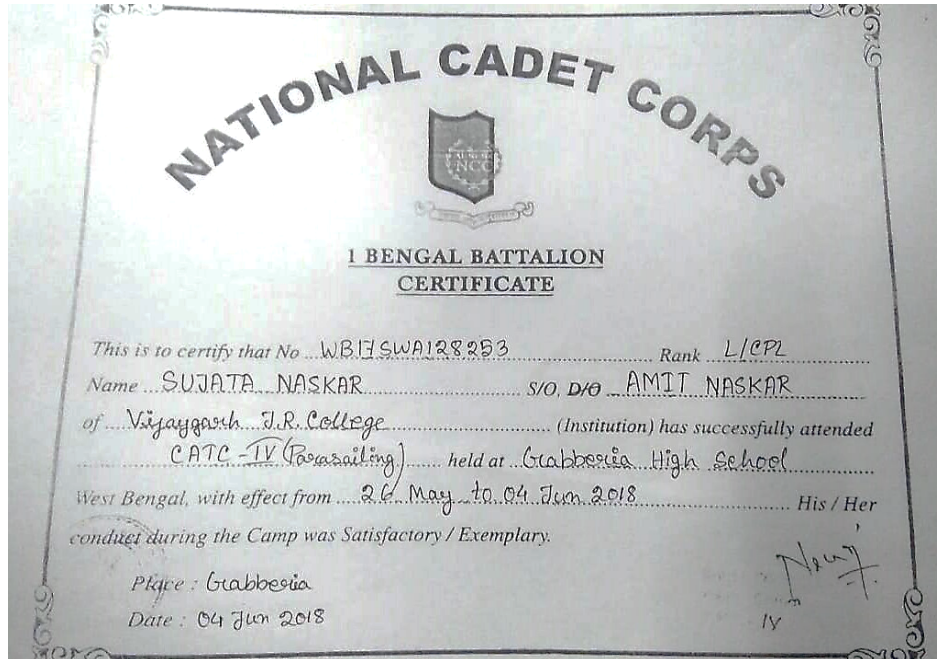 NATIONAL CADET CORPS
NCC
1 BENGAL BATTALION
CERTIFICATE
This is to certify that No WB17SWA128253 Rank L/CPL
Name SUJATA NASKAR S/O, D/O AMIT NASKAR
of Vijaygarh J.R. College (Institution) has successfully attended
CATC-IV (Parasailing) held at Gabberia High School
West Bengal, with effect from 26 May to 04 Jun 2018 His / Her
conduct during the Camp was Satisfactory / Exemplary.
Place : Gabberia
Date : 04 Jun 2018